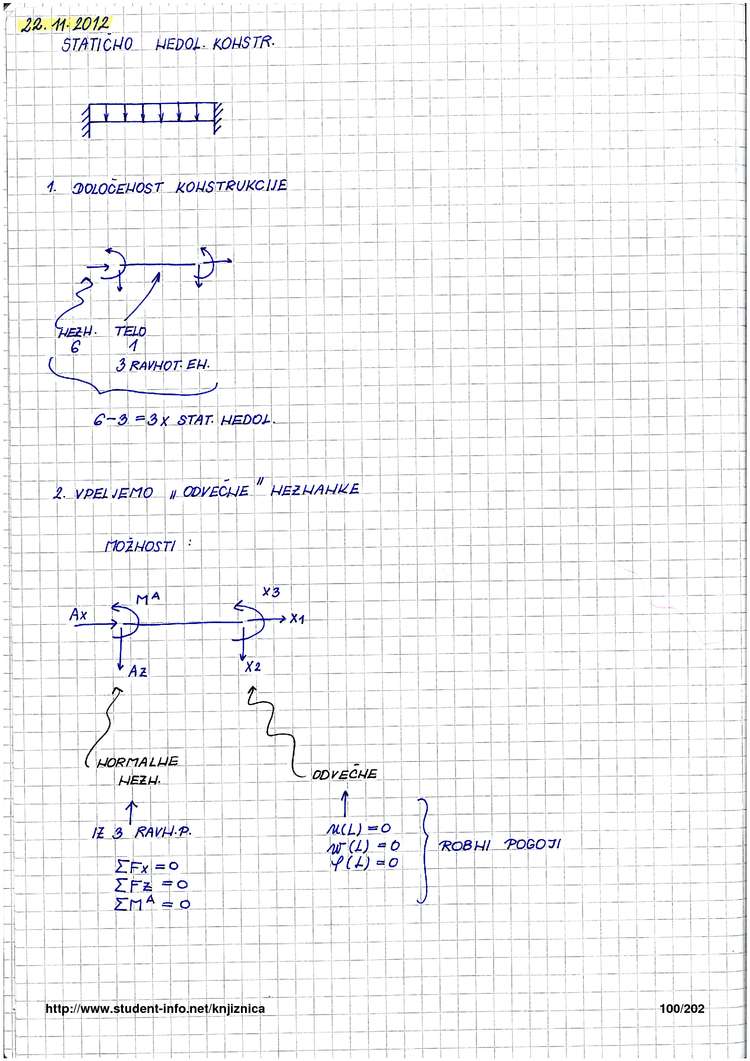 22.11.2012
STATIČNO NEDOL. KONSTR.
1. DOLOČENOST KONSTRUKCIJE
NEZN. TELO
6 1
3 RAVNOT. EN.
6-3 = 3x STAT. NEDOL.
2. VPELJEMO „ODVEČNE" NEZNANKE
MOŽNOSTI :
Ax MA X3 X1
Az X2
NORMALNE
NEZN.
ODVEČNE
IZ 3 RAVN.P.
ΣFx = 0
ΣFz = 0
ΣMA = 0
u(L) = 0
w(L) = 0
φ(L) = 0
ROBNI POGOJI
http://www.student-info.net/knjiznica 100/202